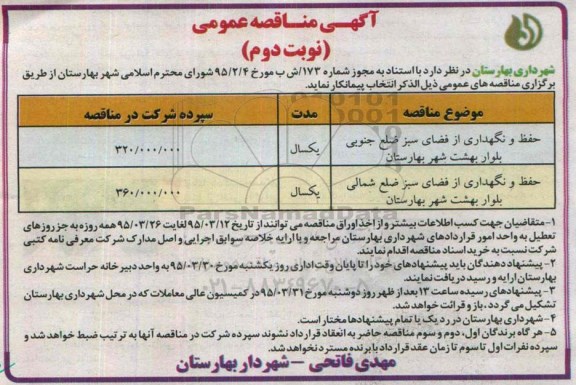 آگهـی منـاقصه عمومی
(نوبت دوم)
شهرداری بهارستان در نظر دارد با استناد به مجوز شماره ۱۷۳/ش ب مورخ ۹۵/۲/۴ شورای محترم اسلامی شهر بهارستان از طریق
برگزاری مناقصه های عمومی ذیل الذکر انتخاب پیمانکار نماید.
موضوع مناقصه مدت سپرده شرکت در مناقصه
حفظ و نگهداری از فضای سبز ضلع جنوبی
بلوار بهشت شهر بهارستان یکسال ۳۲۰/۰۰۰/۰۰۰
حفظ و نگهداری از فضای سبز ضلع شمالی
بلوار بهشت شهر بهارستان یکسال ۳۶۰/۰۰۰/۰۰۰
۱- متقاضیان جهت کسب اطلاعات بیشتر و از اخذ اوراق مناقصه می توانند از تاریخ ۹۵/۰۳/۱۲ لغایت ۹۵/۰۳/۲۶ همه روزه به جز روزهای
تعطیل به واحد امور قراردادهای شهرداری بهارستان مراجعه و با ارایه خلاصه سوابق اجرایی و اصل مدارک شرکت معرفی نامه کتبی
شرکت نسبت به خرید اسناد مناقصه اقدام نمایند.
۲- پیشنهاد دهندگان باید پیشنهادهای خود را تا پایان وقت اداری روز یکشنبه مورخ ۹۵/۰۳/۳۰ به واحد دبیرخانه حراست شهرداری
بهارستان ارایه و رسید دریافت نمایند.
۳- پیشنهادهای رسیده ساعت ۱۳ بعد از ظهر روز دوشنبه مورخ ۹۵/۰۳/۳۱ در کمیسیون عالی معاملات که در محل شهرداری بهارستان
تشکیل می گردد، باز و قرائت خواهد شد.
۴- شهرداری بهارستان در رد یک یا تمام پیشنهادها مختار است.
۵- هر گاه برندگان اول، دوم و سوم مناقصه حاضر به انعقاد قرارداد نشوند سپرده شرکت در مناقصه آنها به ترتیب ضبط خواهد شد و
سپرده نفرات اول تا سوم تا زمان عقد قرارداد با برنده مسترد نخواهد شد.
مهدی فاتحی – شهردار بهارستان
ParsNamadData
۰۲۱-۸۸۳۴۹۶۷۰-۵